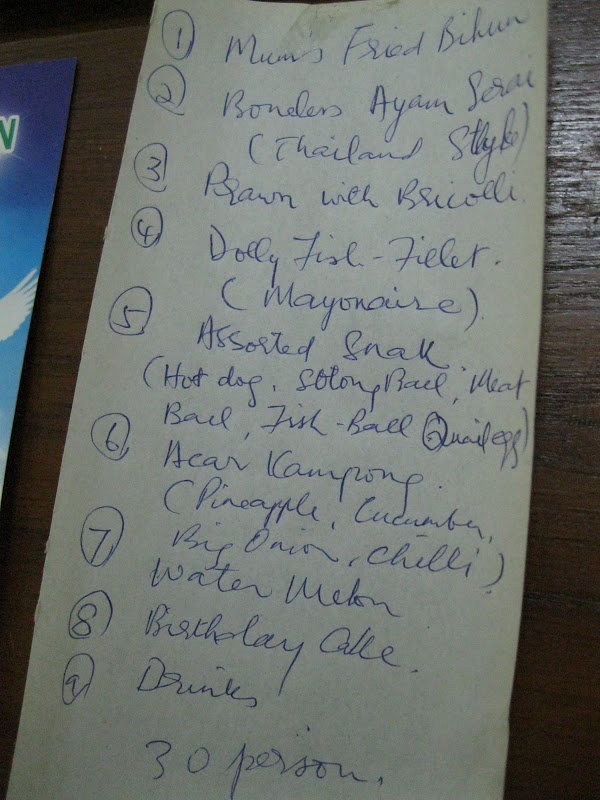 N
1 Mum's Fried Bihun
2 Boneless Ayam Serai
(Thailand Style)
3 Prawn with Bricolli
4 Dolly Fish-Fillet.
(Mayonaise).
5 Assorted Snak
(Hot dog, Sotong Ball, Meat
Ball, Fish-Ball Quail egg)
6 Acar Kampong.
(Pineapple, Cucumber,
Big Onion, Chilli)
7 Water Melon
8 Birthday Cake.
9 Drinks
30 person.